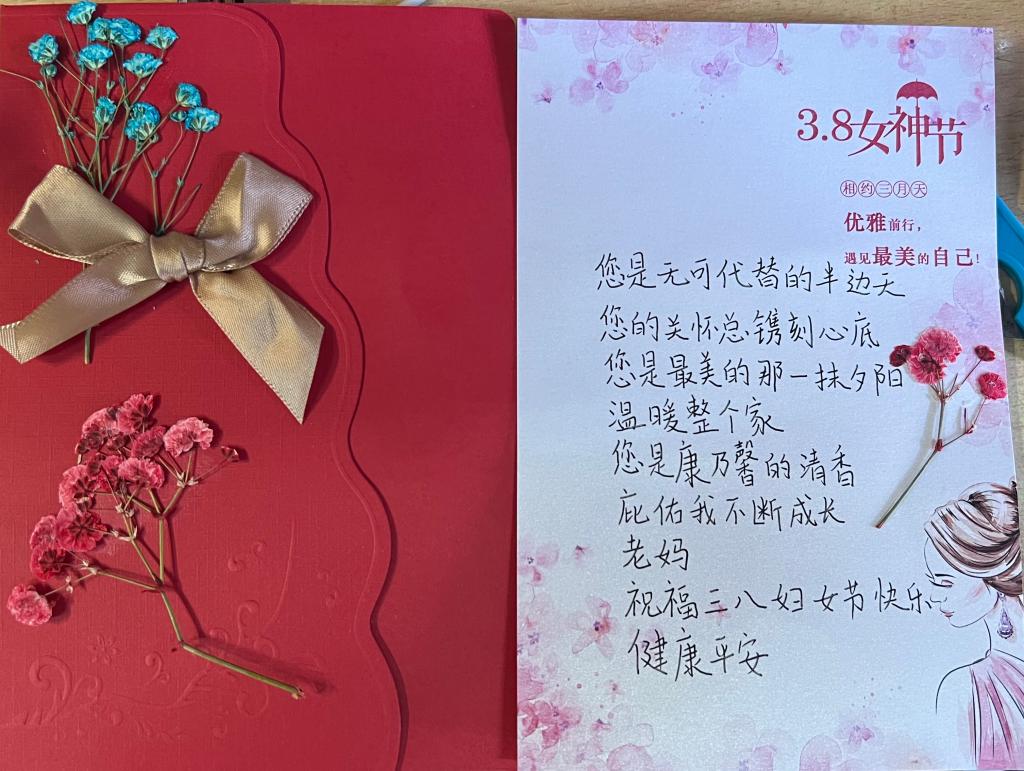 3.8女神节
相约三月天
优雅前行，
遇见最美的自己！
您是无可代替的半边天
您的关怀总镌刻心底
您是最美的那一抹夕阳
温暖整个家
您是康乃馨的清香
庇佑我不断成长
老妈
祝福三八妇女节快乐
健康平安